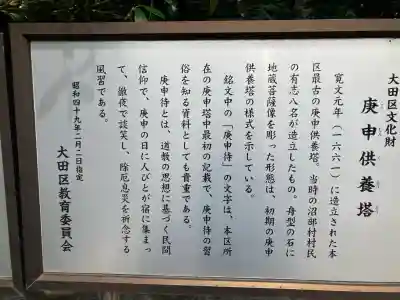 大田区文化財
庚申供養塔
寛文元年(一六六一)に造立された本
区最古の庚申供養塔。当時の沼部村村民
の有志八名が造立したもの。舟型の石に
地蔵菩薩像を彫った形態は、初期の庚申
供養塔の様式を示している。
銘文中の「庚申待」の文字は、本区所
在の庚申塔中最初の記載で、庚申待の習
俗を知る資料としても貴重である。
庚申待とは、道教の思想に基づく民間
信仰で、庚申の日に人びとが宿に集まっ
て、徹夜で談笑し、除厄息災を祈念する
風習である。
昭和四十九年二月二日指定
大田区教育委員会